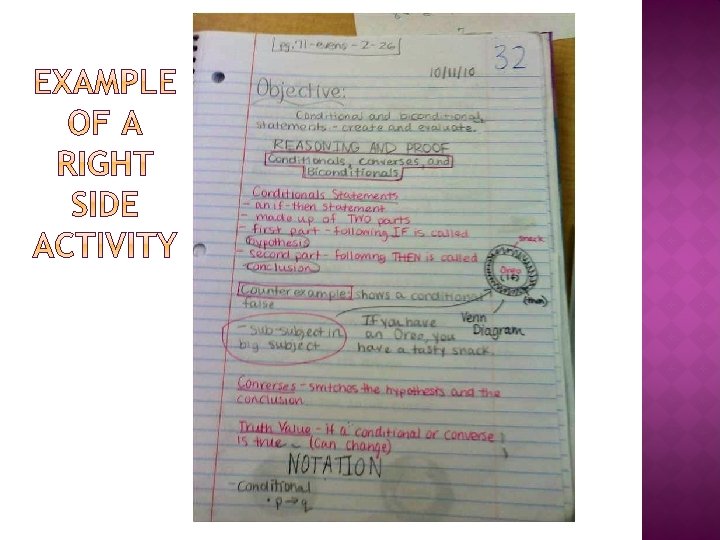 EXAMPLE
OF A
RIGHT
SIDE
ACTIVITY
pg. 71-evens-2-26
10/11/10
32
Objective:
Conditional and biconditional
statements - create and evaluate.
REASONING AND PROOF
Conditionals, converses, and
Biconditionals
Conditionals Statements
- an if-then statement
- made up of TWO parts
- first part - following IF is called
hypothesis
- second part - following THEN is called
conclusion
snack
Oreo
(If)
(then)
Venn
Diagram
Counter example: shows a conditional
false
- sub-subject in
big subject
If you have
an Oreo, you
have a tasty snack.
Converses - switches the hypothesis and the
conclusion.
Truth Value - if a conditional or converse
is true (can change)
NOTATION
- Conditional
• p→q